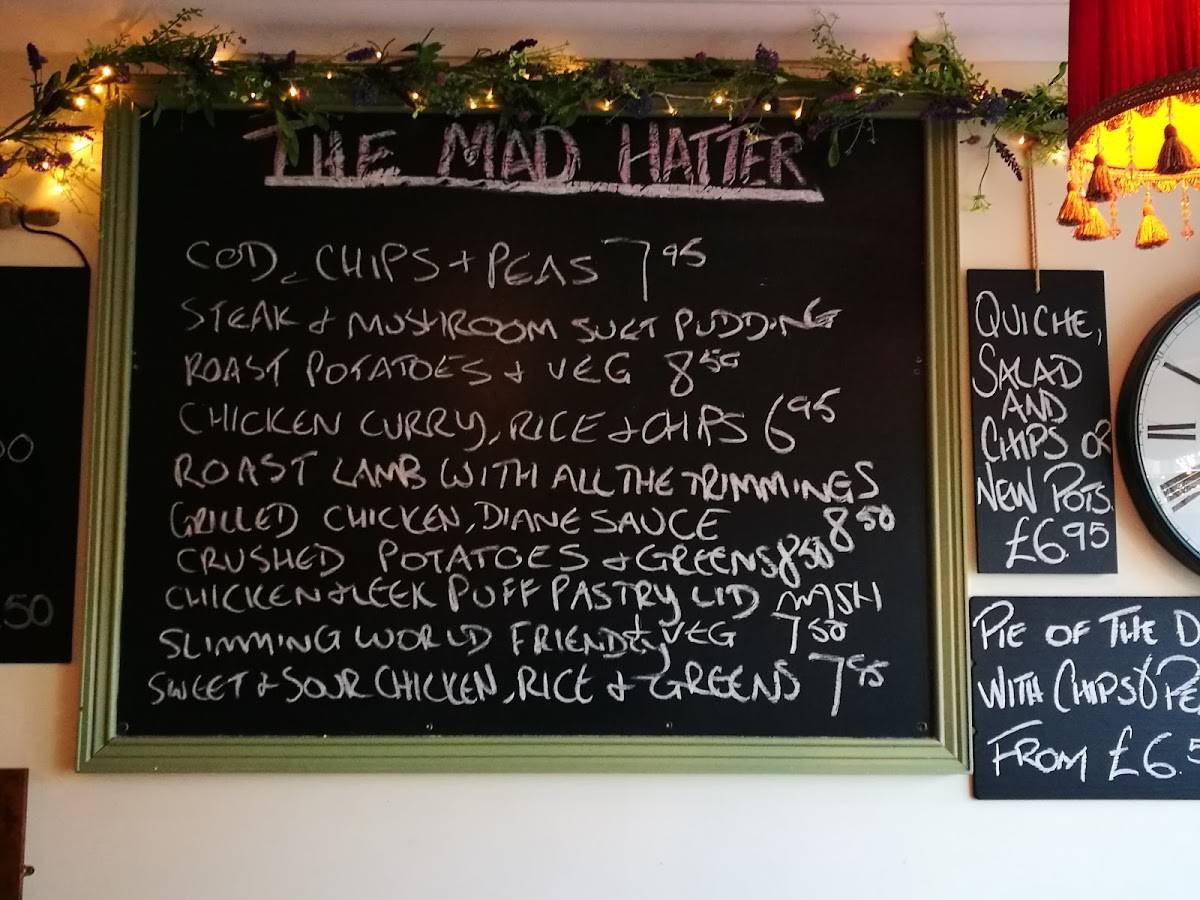 THE MAD HATTER
COD, CHIPS + PEAS 7 95
STEAK & MUSHROOM SUET PUDDING
ROAST POTATOES & VEG 8 50
CHICKEN CURRY, RICE & CHIPS 6 95
ROAST LAMB WITH ALL THE TRIMMINGS
8 50
GRILLED CHICKEN, DIANE SAUCE
CRUSHED POTATOES & GREENS 8 50
CHICKEN & LEEK PUFF PASTRY LID MASH
& VEG 7 50
SLIMMING WORLD FRIENDLY
SWEET & SOUR CHICKEN, RICE & GREENS 7 95
QUICHE,
SALAD
AND
CHIPS OR
NEW POTS.
£6.95
PIE OF THE D
WITH CHIPS & PE
FROM £6.5
50